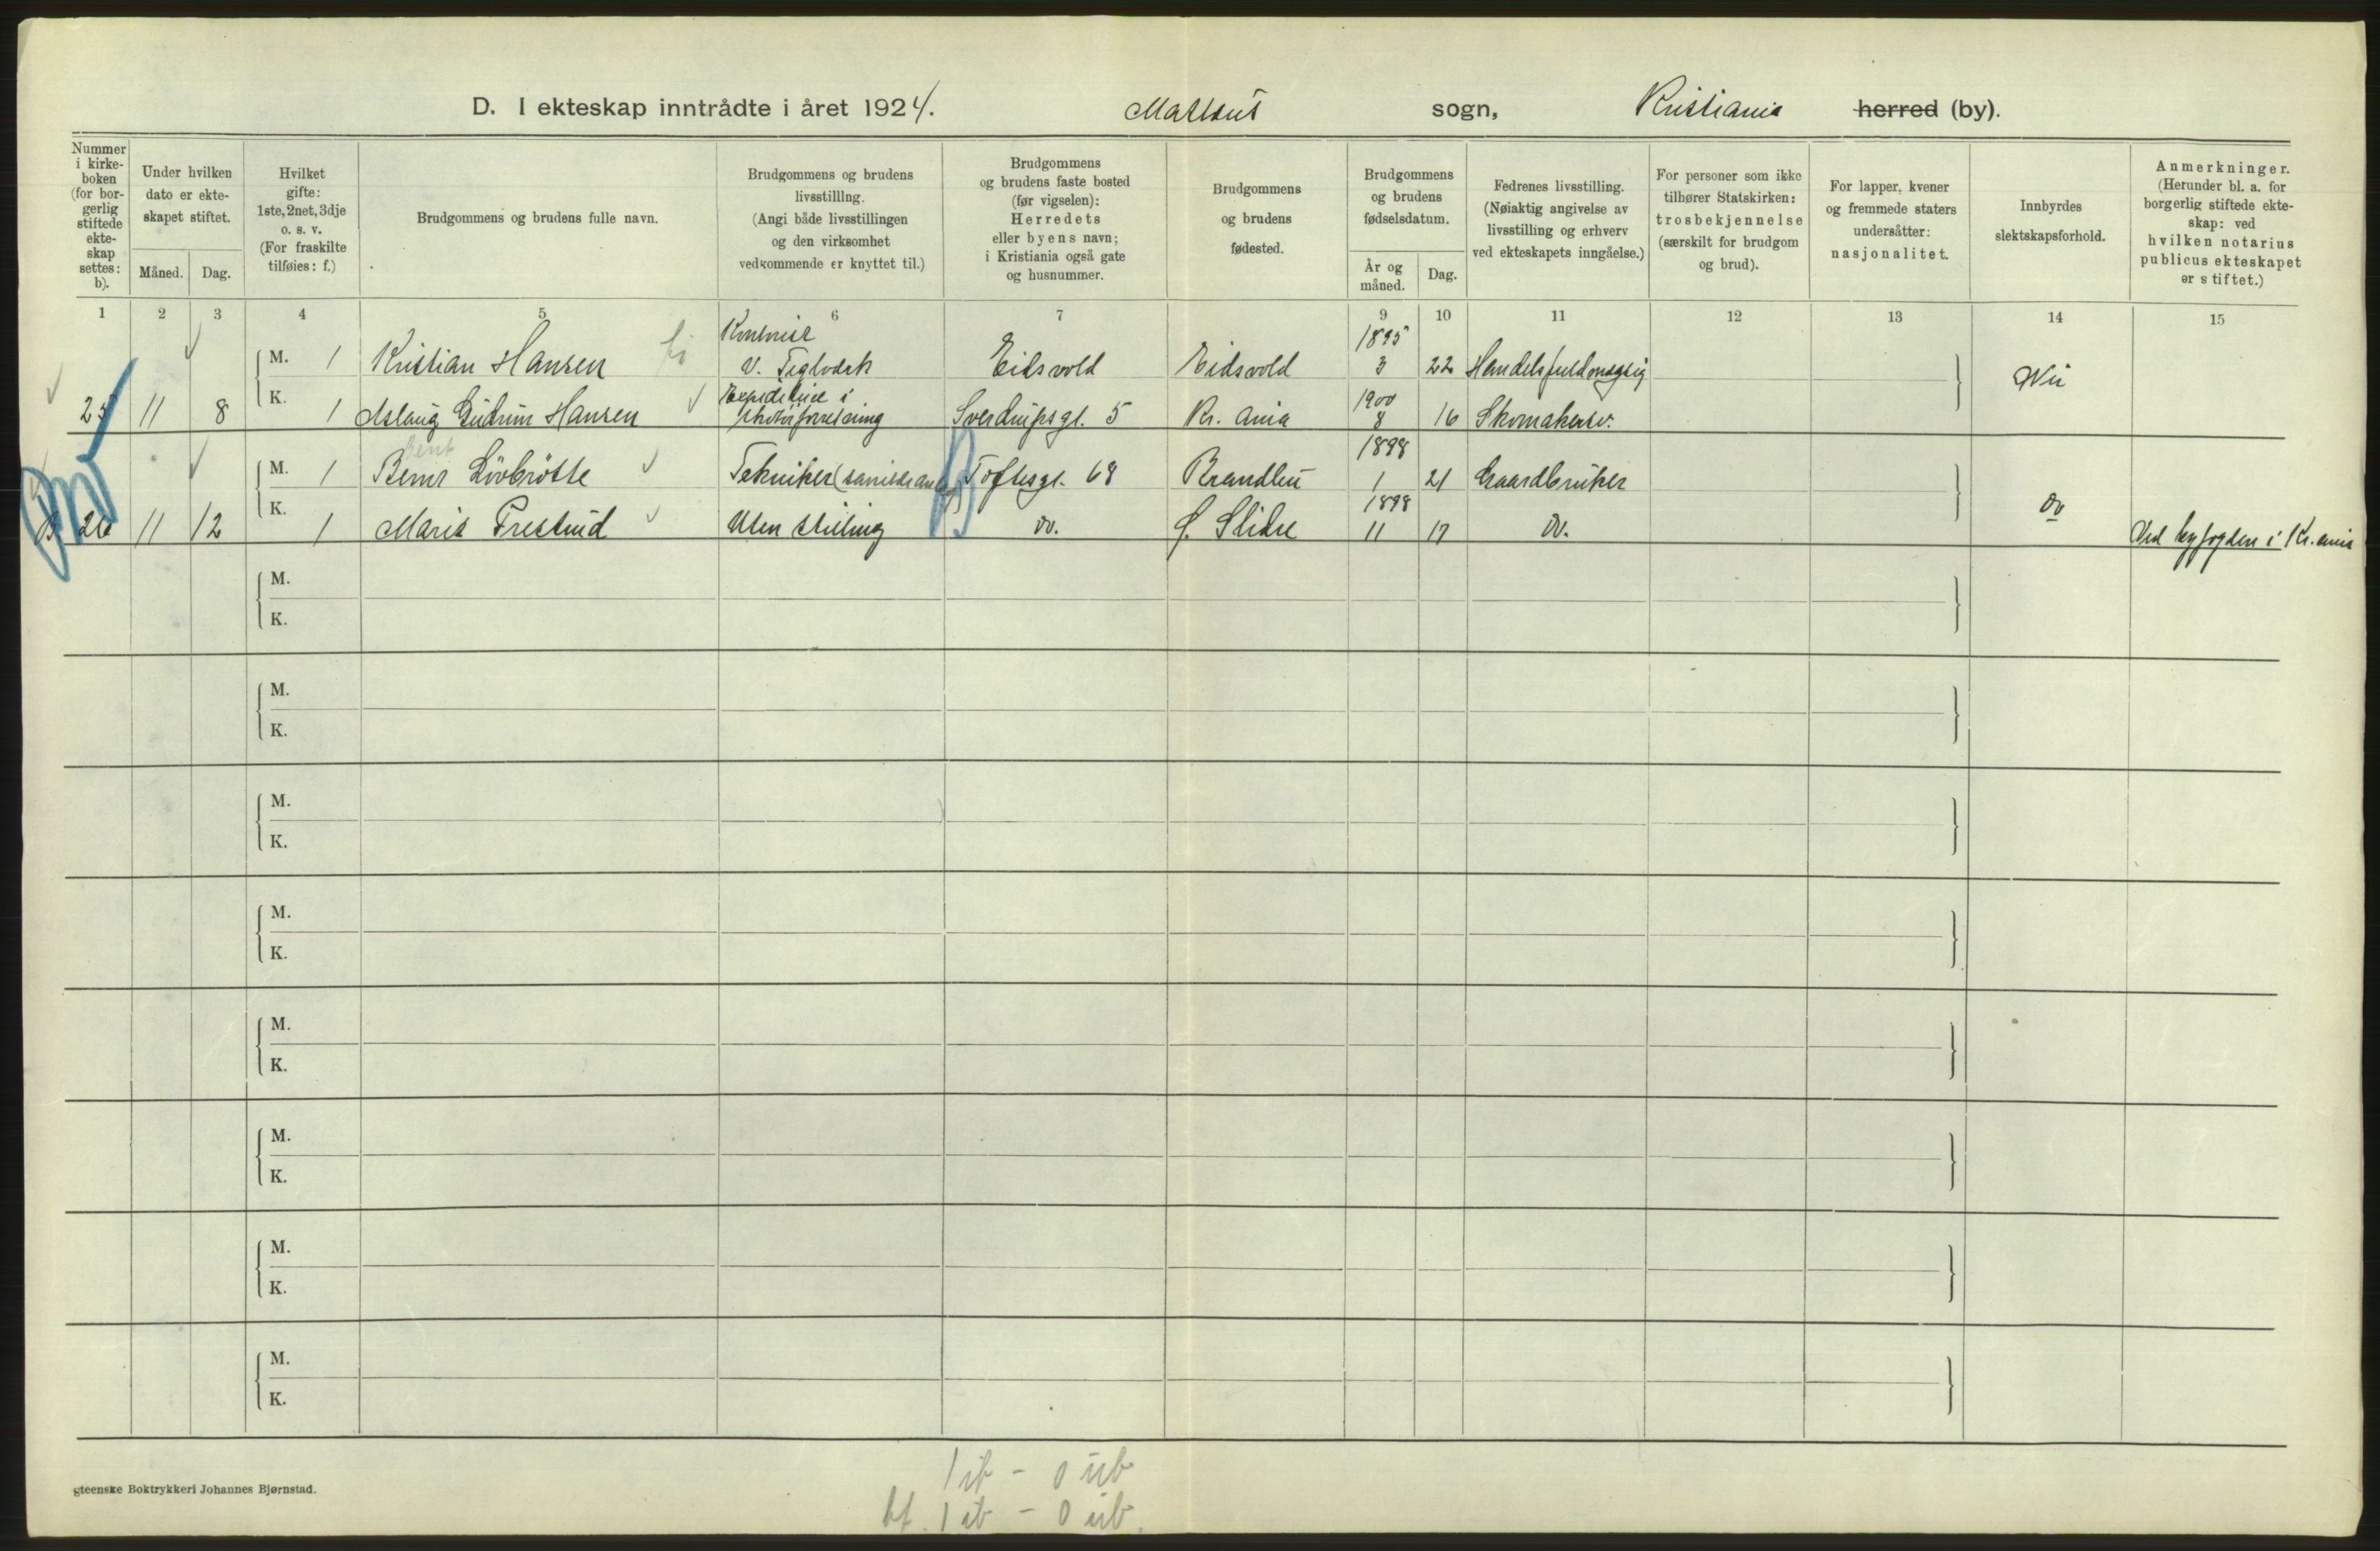 D. I ekteskap inntrådte i året 1924. Matteus sogn, Kristiania herred (by).
Nummer i kirke- boken (for bor- gerlig stiftede ekte- skap settes: b).
Under hvilken dato er ekte- skapet stiftet.
Måned. Dag.
Hvilket gifte: 1ste, 2net, 3dje o. s. v. (For fraskilte tilføies: f.)
Brudgommens og brudens fulle navn.
Brudgommens og brudens livsstilling. (Angi både livsstillingen og den virksomhet vedkommende er knyttet til.)
Brudgommens og brudens faste bosted (før vigselen): Herredets eller byens navn; i Kristiania også gate og husnummer.
Brudgommens og brudens fødested.
Brudgommens og brudens fødselsdatum.
År og måned. Dag.
Fedrenes livsstilling. (Nøiaktig angivelse av livsstilling og erhverv ved ekteskapets inngåelse.)
For personer som ikke tilhører Statskirken: trosbekjennelse (særskilt for brudgom og brud).
For lapper, kvener og fremmede staters undersåtter: nasjonalitet.
Innbyrdes slektskapsforhold.
Anmerkninger. (Herunder bl. a. for borgerlig stiftede ekte- skap: ved hvilken notarius publicus ekteskapet er stiftet.)
1 2 3 4 5 6 7 9 10 11 12 13 14 15
M. 1 Kristian Hansen Kontorist v. Teglverk Eidsvold Eidsvold 1895 3 22 Handelsfuldmægtig
25 11 8 K. 1 Aslaug Gudrun Hansen Expeditrice i skotøiforretning Sverdrupsgt. 5 Kr.ania 1900 8 16 Skomakersv.
Bent
M. 1 Bernt Lövbrötte Tekniker (sanitæranlæg) Toftesgt. 68 Brandbu 1898 1 21 Gaardbruker
B 26 11 12 K. 1 Maria Frestud Uten stilling do. S. Slidre 1898 11 17 do. do Ved byfogden i Kr.ania
M.
K.
M.
K.
M.
K.
M.
K.
M.
K.
M.
K.
M.
K.
M.
K.
1 ib - 0 ub
gteenske Boktrykkeri Johannes Bjørnstad.
bf. 1 ib - 0 ub.